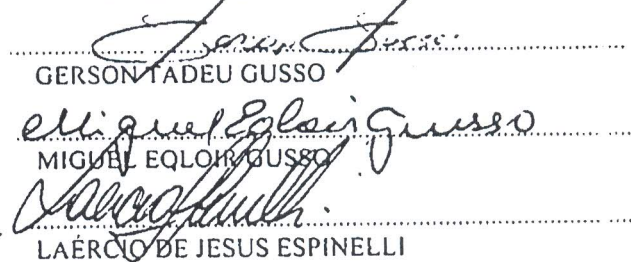 Gerson Gusso
GERSON TADEU GUSSO
Miguel Eqloir Gusso
MIGUEL EQLOIR GUSSO
LAÉRCIO DE JESUS ESPINELLI